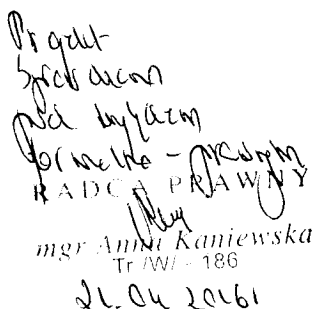 Projekt
Sprawdzono
pod względem
formalno - prawnym
RADCA PRAWNY
mgr Anna Kaniewska
Tr /W/ - 186
21.04.2016r